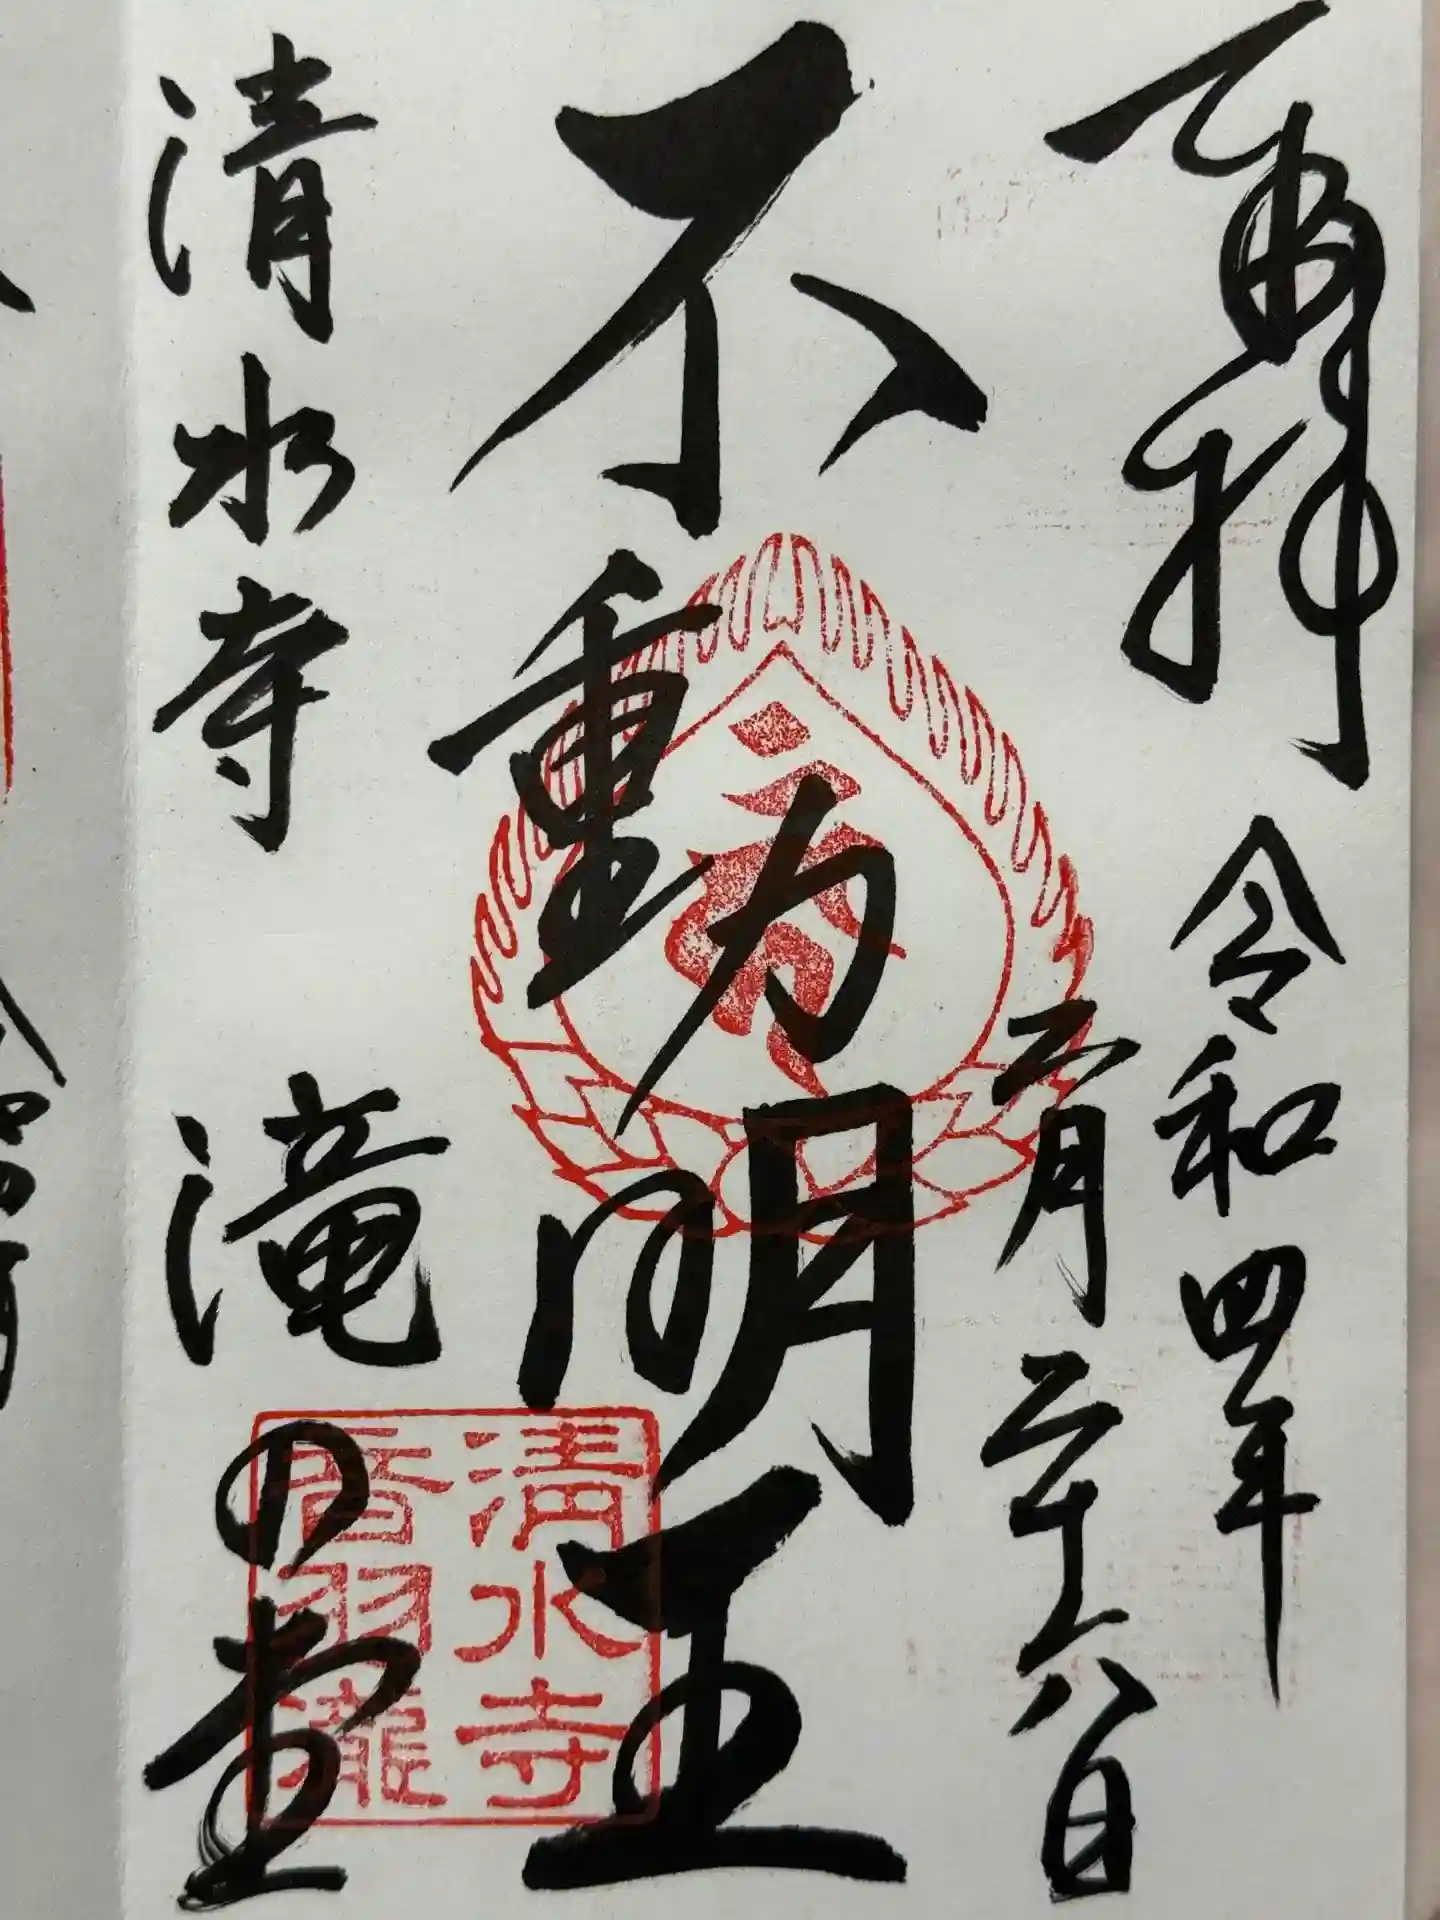 再拝
令和四年
二月二十八日
不動明王
清水寺 滝の堂
清水寺
音羽瀧